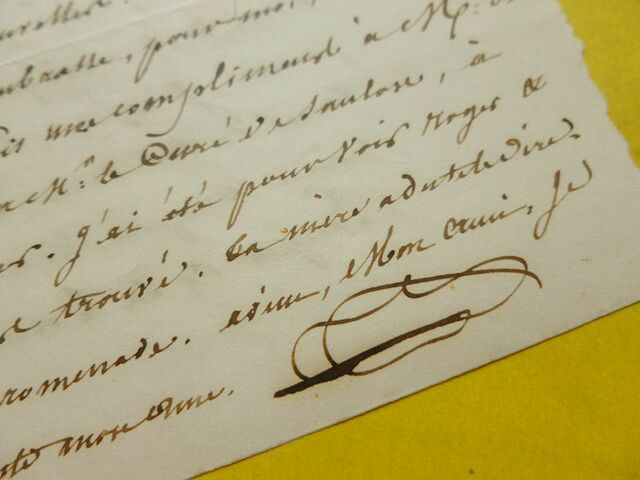 embrasse, pour moi,
une compliment à M.
M.r le Curé de Saulon, à
j'ai été pour voir Roger &
trouvé. la mère a dû te le dire.
promenade. adieu, Mon ami, Je
mon âme.